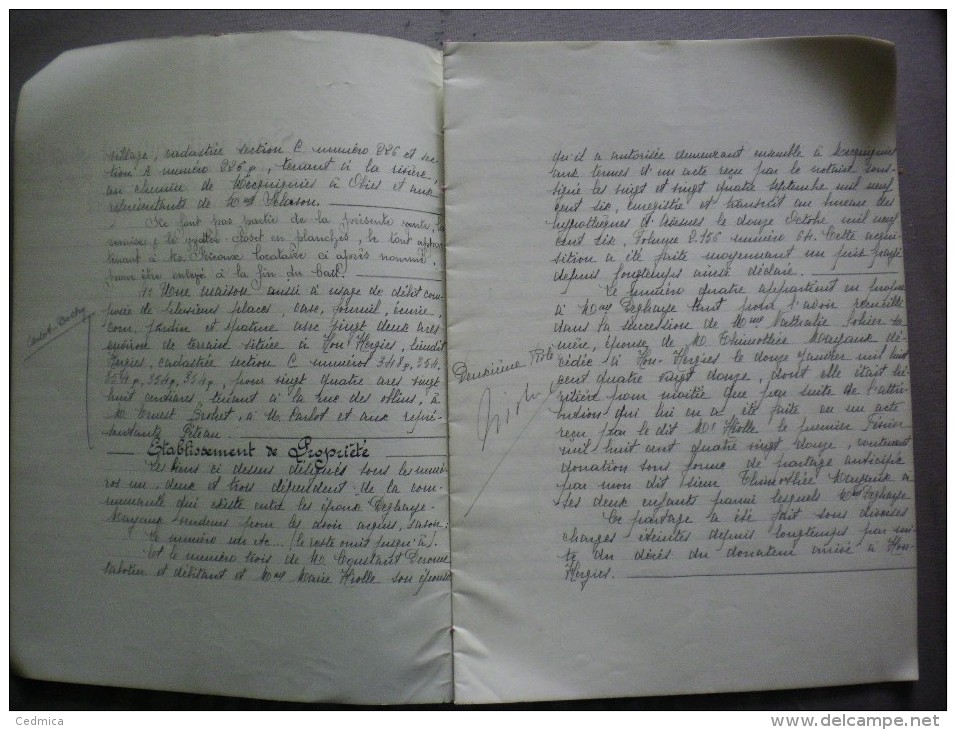 village, cadastrée section C numéro 226 et sec
tion A numéro 226p, tenant à la rivière,
au chemin de Mecquignies à Obies et aux
représentants de Mme
Ne font pas partie de la présente vente, la
remise, le water-closet en planches, le tout appar
tenant à M. locataire ci après nommé,
pour être enlevé à la fin du bail.
4° Une maison aussi à usage de débit com
posée de plusieurs places, cave, fournil, écurie,
cour, jardin et pature avec vingt deux ares
environ de terrain située à Hon-Hergies, lieudit
Hergies, cadastrée section C numéros 348p, 354,
354p, 354p, 354p, pour vingt quatre ares vingt
huit centiares, tenant à la rue des à
M. Ernest à M. Carlot et aux repré-
sentants
Établissement de Propriété
Les biens ci dessus désignés sous les numé
ros un, deux et trois dépendent de la com
munauté qui existe entre les époux Deghaye-
Mayaux vendeurs pour les avoir acquis, savoir:
Le numéro un etc... (le reste omit jusqu'à).
Et le numéro trois de M. Constant Derome
sabotier et débitant et Mme Marie Hiolle son épouse
qu'il a autorisée demeurant ensemble à Mecquignies
aux termes d'un acte reçu par le notaire sous-
signé les vingt et vingt quatre septembre mil neuf
cent six, enregistré et transcrit au bureau des
hypothèques d'Avesnes le douze Octobre mil neuf
cent six, Volume 2.156 numéro 64. Cette acqui
sition a été faite moyennant un prix payé
depuis longtemps ainsi déclaré.
Le numéro quatre appartient en propre
à Mme Deghaye tant pour l'avoir recueilli
dans la succession de Mme Nathalie Lohier sa
mère, épouse de M. Thimothée Mayaux dé-
cédée à Hon-Hergies le douze Janvier mil huit
cent quatre vingt douze, dont elle était hé-
ritière pour moitié que par suite de l'attri-
bution qui lui en a été faite en un acte
reçu par le dit Me Hiolle le premier Février
mil huit cent quatre vingt douze, contenant
donation sous forme de partage anticipé
par mon dit sieur Thimothée Mayaux à
ses deux enfants parmi lesquels Mme Deghaye
Ce partage a été fait sous diverses
charges éteintes depuis longtemps par sui
te du décès du donateur arrivé à Hon-
Hergies.
Deuxième rôle
Cedmica
www.delcampe.net